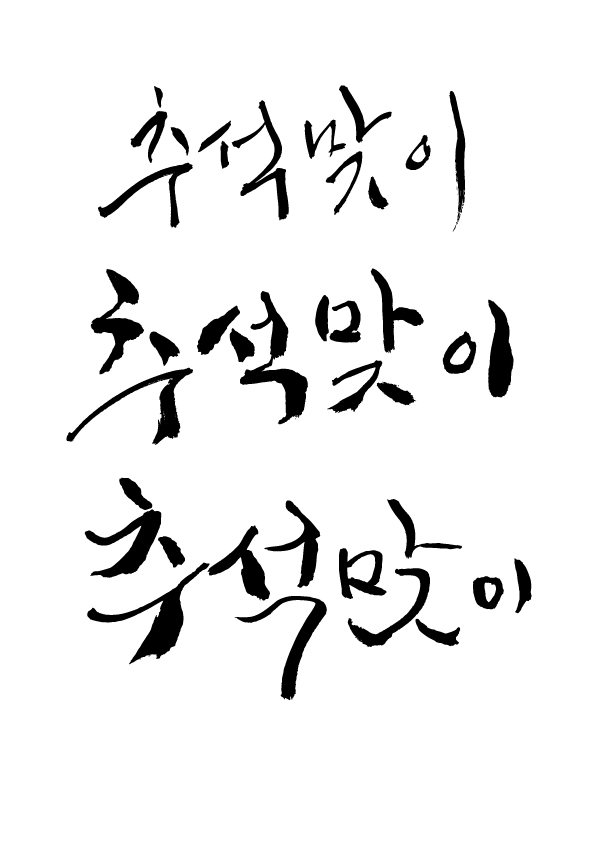 추석맞이
추석맞이
추석맞이